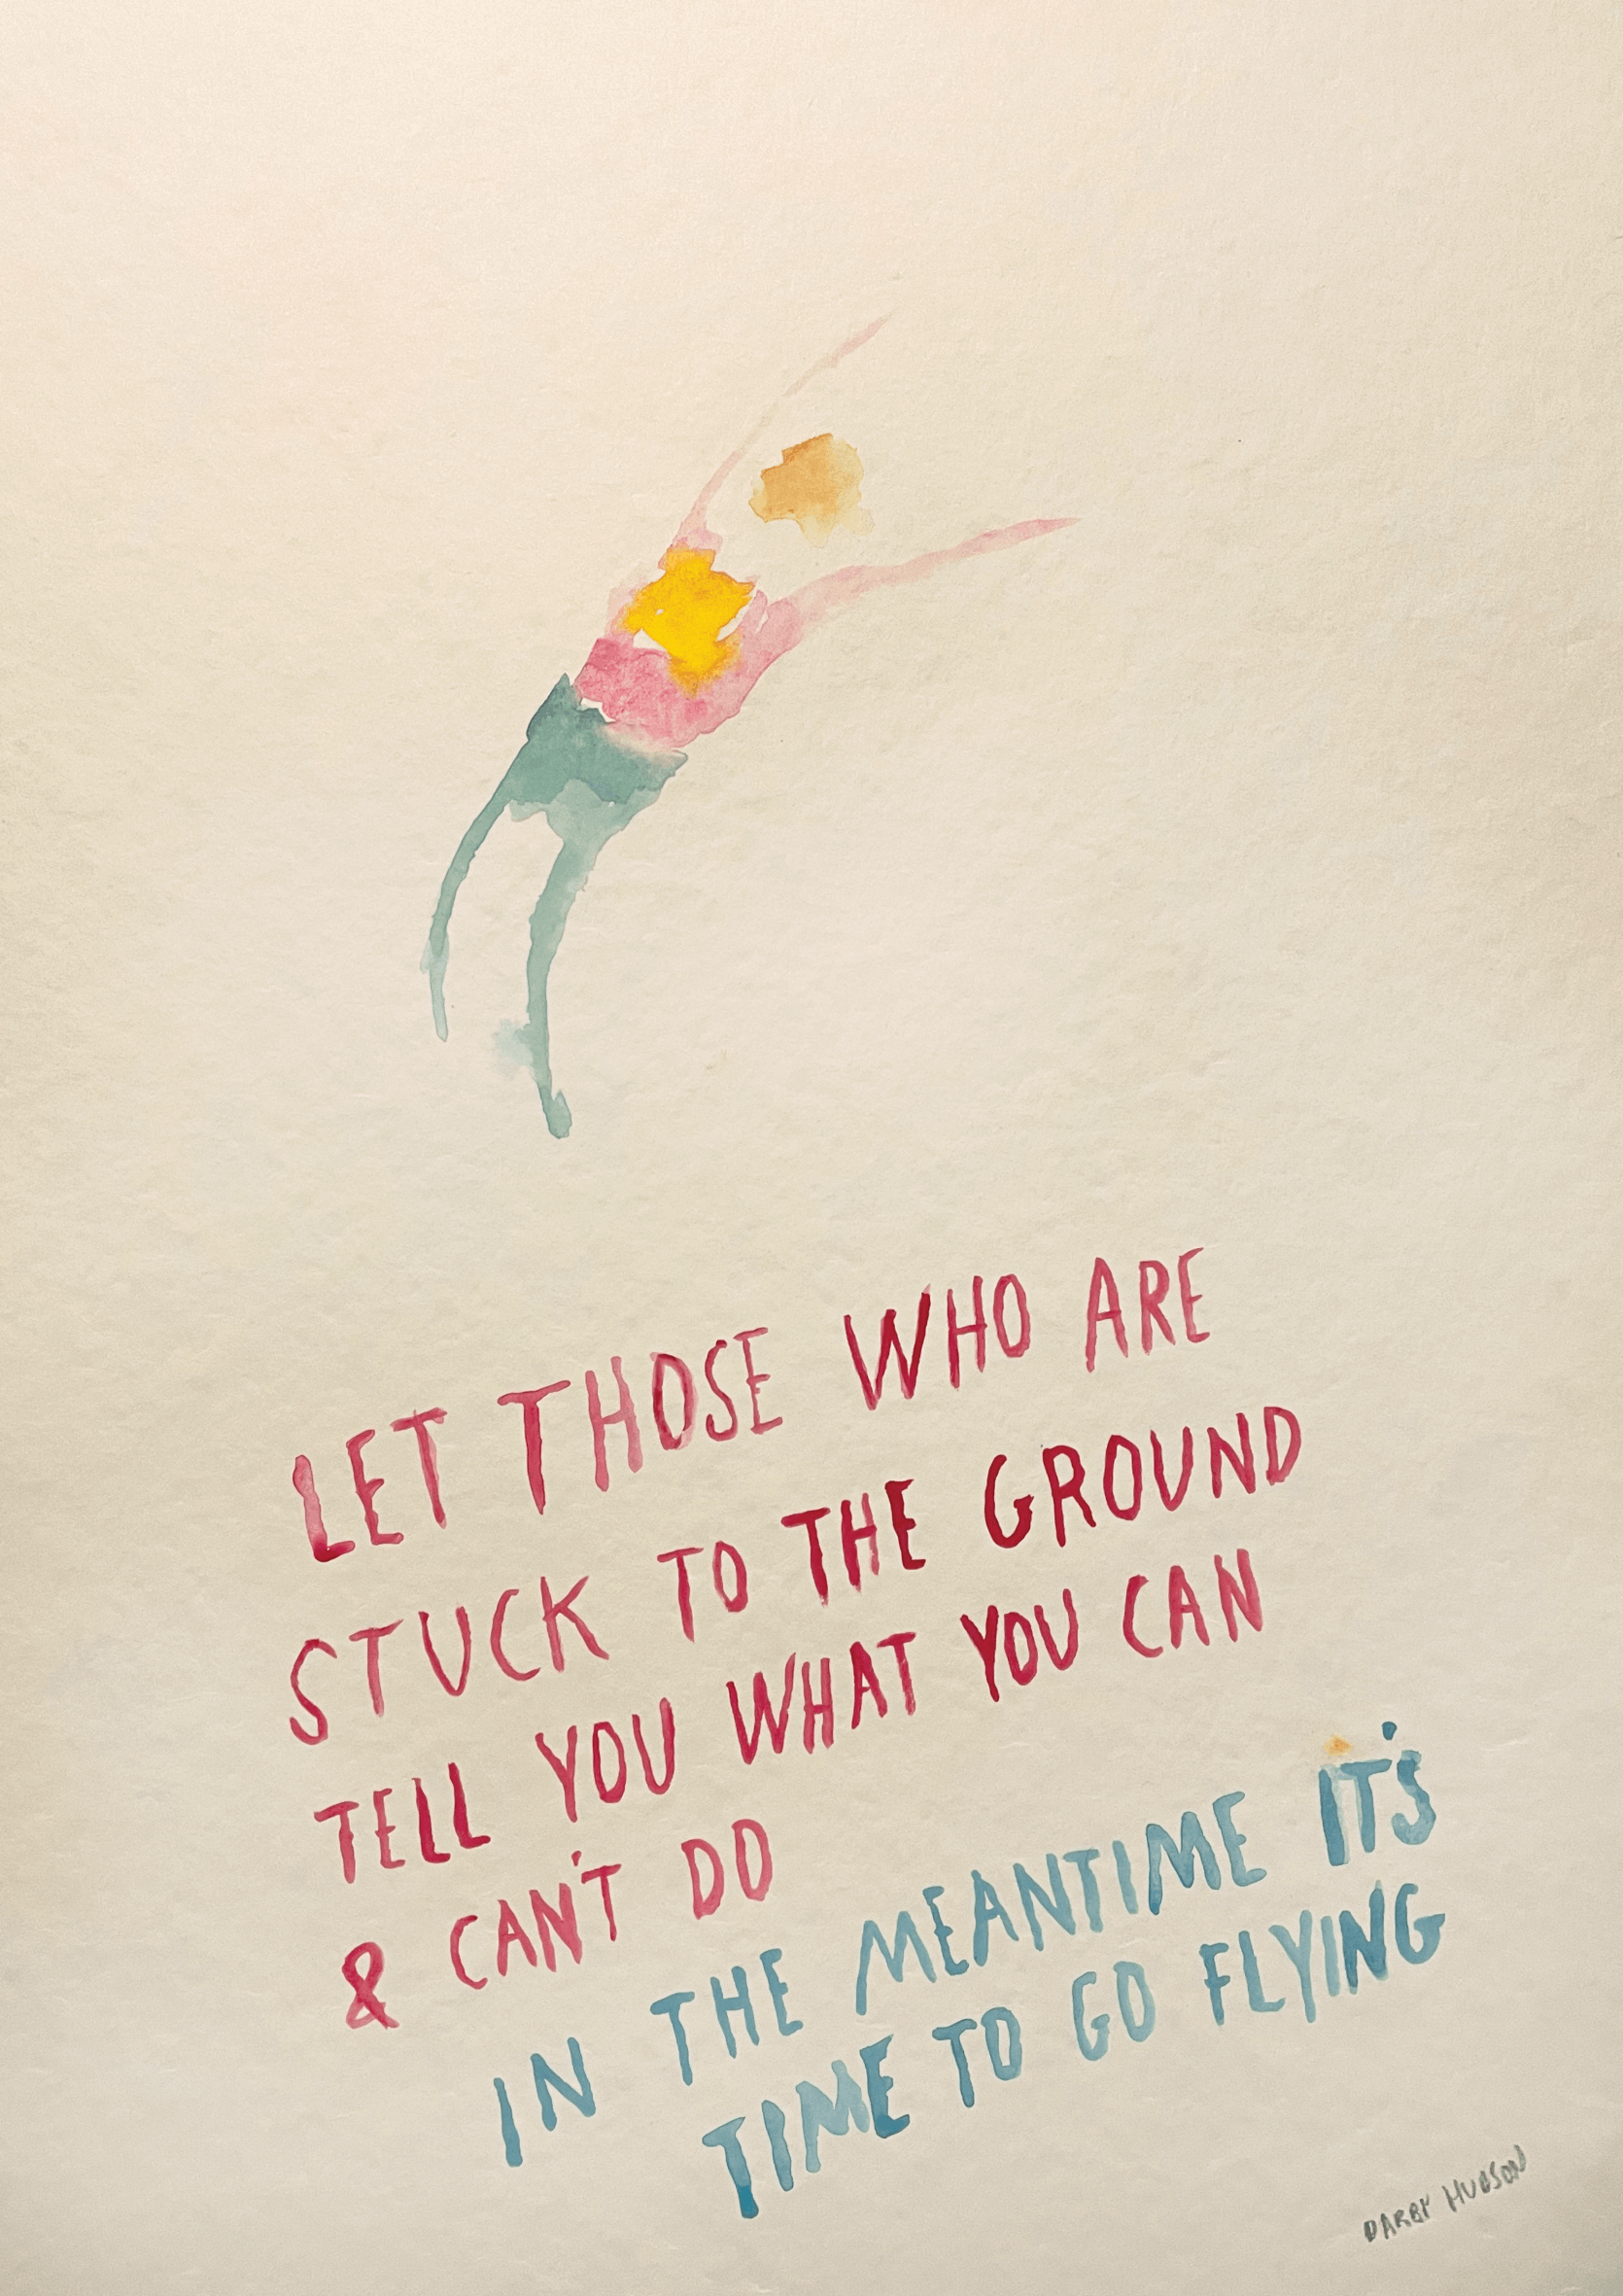 LET THOSE WHO ARE
STUCK TO THE GROUND
TELL YOU WHAT YOU CAN
& CAN'T DO
IN THE MEANTIME IT'S
TIME TO GO FLYING
DARBY HUDSON